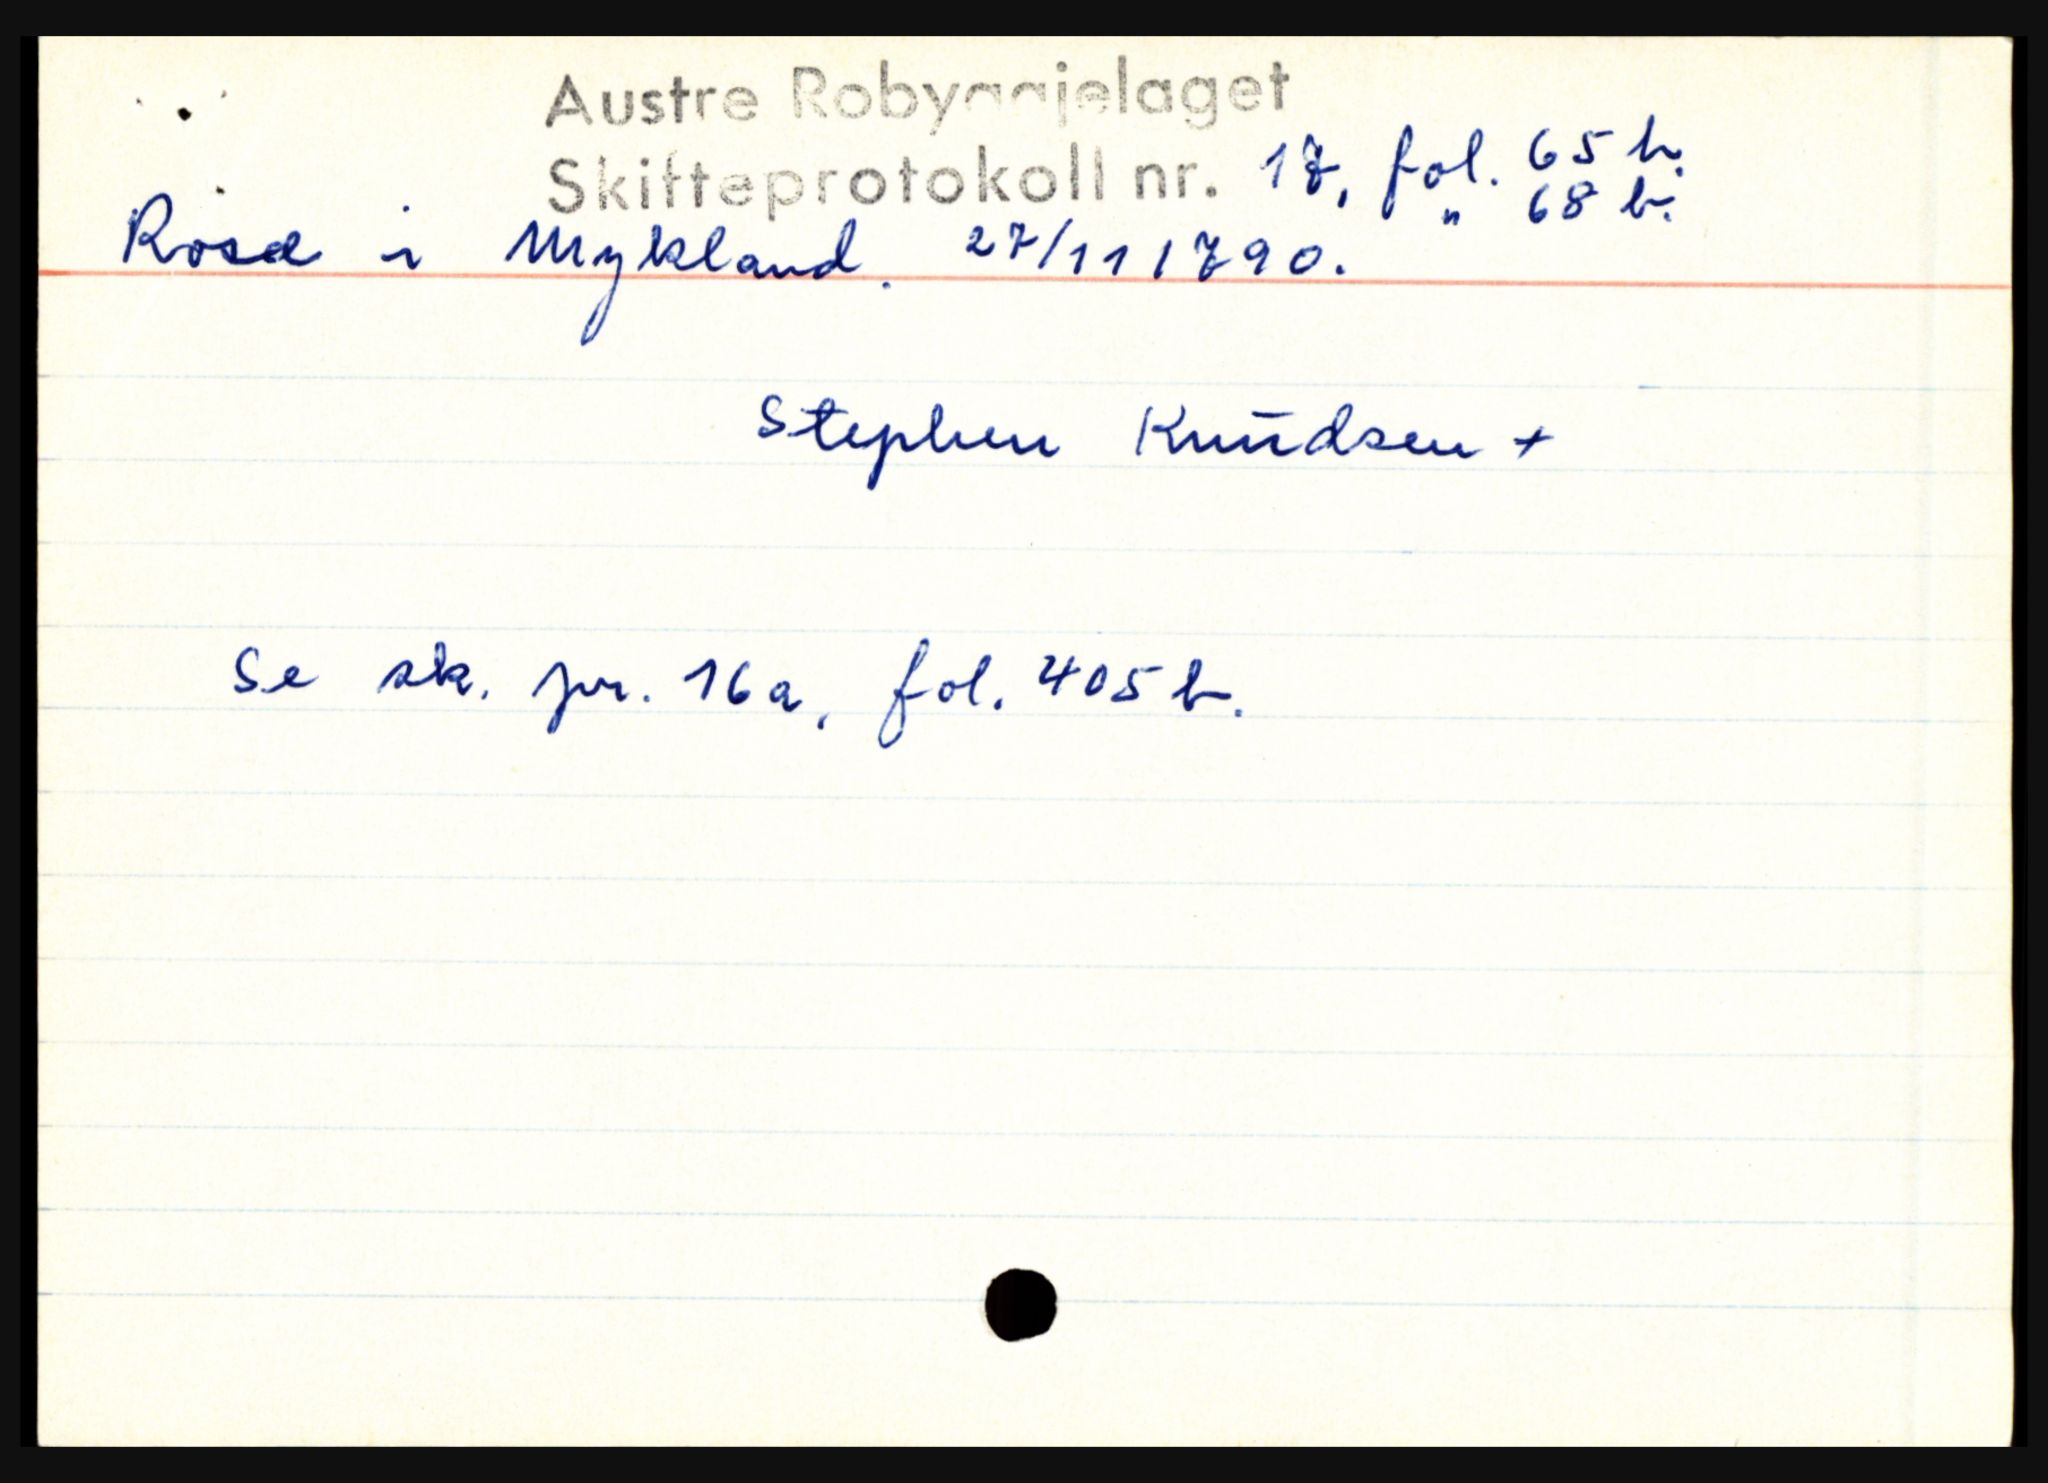 Austre Robyggjelaget
Skifteprotokoll nr. 17, fol. 65 b.
" 68 b.
Rosef i Mykland. 27/11 1790.
Stephen Knudsen +
Se sk. pr. 16a, fol. 405 b.